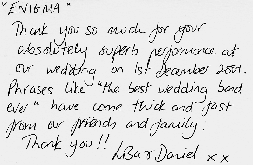 "ENIGMA"
Thank you so much for your
absolutely superb performance at
our wedding on 1st December 2001.
Phrases like "the best wedding band
ever" have come thick and fast
from our friends and family.
Thank you!!
& Daniel xx